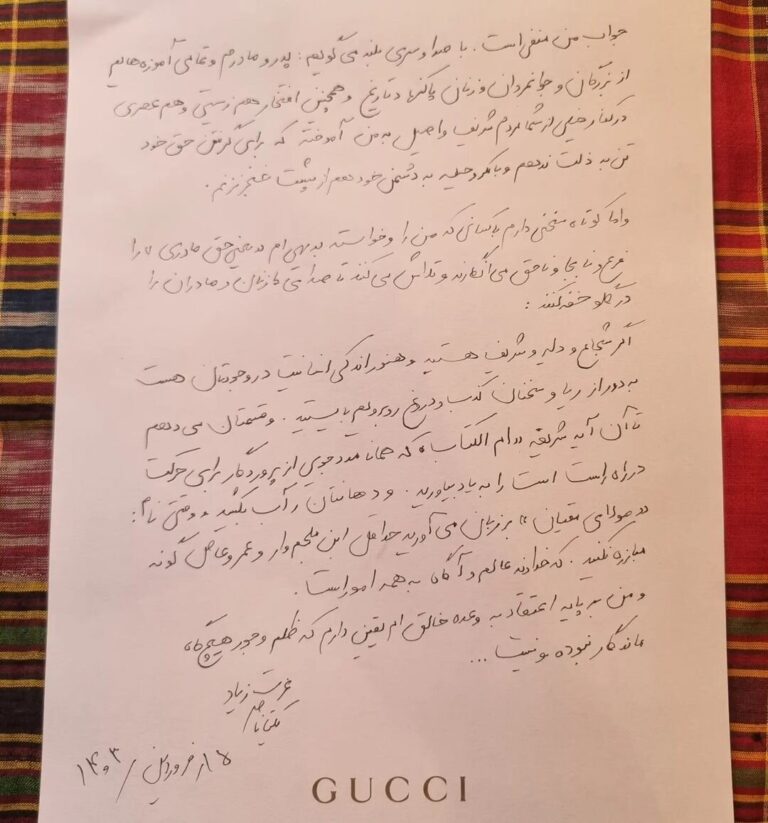 جواب من منفی است. با صدا و سری بلند می گویم: پدر و مادرم و تمامی آموزه هایم
از بزرگان و جوانمردان و زنان پاکنهاد تاریخ و همچنین افتخار هم زیستی و هم عصری
در کنار خیلی از شما مردم شریف و اصیل به من آموخته که برای گرفتن حق خود
تن به ذلت ندهم و با مکر و حیله به دشمن خود هم از پشت خنجر نزنم.
و اما کوتاه سخنی دارم با کسانی که من را و خواسته بدیهی ام یعنی «حق مادری» را
نابجا و ناحق می انگارند و تلاش می کنند تا صدای زنان و مادران را
در گلو خفه کنند:
اگر شجاع و دلیر و شریف هستید و هنوز اندکی انسانیت در وجودتان هست
به دور از ریا و سخنان کذب و دروغ روبرویم بایستید. و قسمتان می دهم
تا آن آیه شریفه «ام الکتاب» که همانا مددجویی از پروردگار برای حرکت
در راه راست است را به یاد بیاورید. و دهانتان را آب بکشید وقتی نام:
«مولای متقیان» بر زبان می آورید حداقل ابن ملجم وار و عمروعاص گونه
مبارزه نکنید. که خداوند عالم و آگاه به همه امور است.
و من بر پایه اعتقاد به وعده خالق ام یقین دارم که ظلم و جور هیچگاه
ماندگار نبوده و نیست...
عزت زیاد
یکتا ناصر
۱۵ از فروردین / ۱۴۰۳
GUCCI